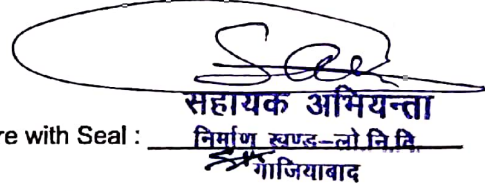 सहायक अभियन्ता
re with Seal : निर्माण खण्ड-लो.नि.वि.
गाजियाबाद